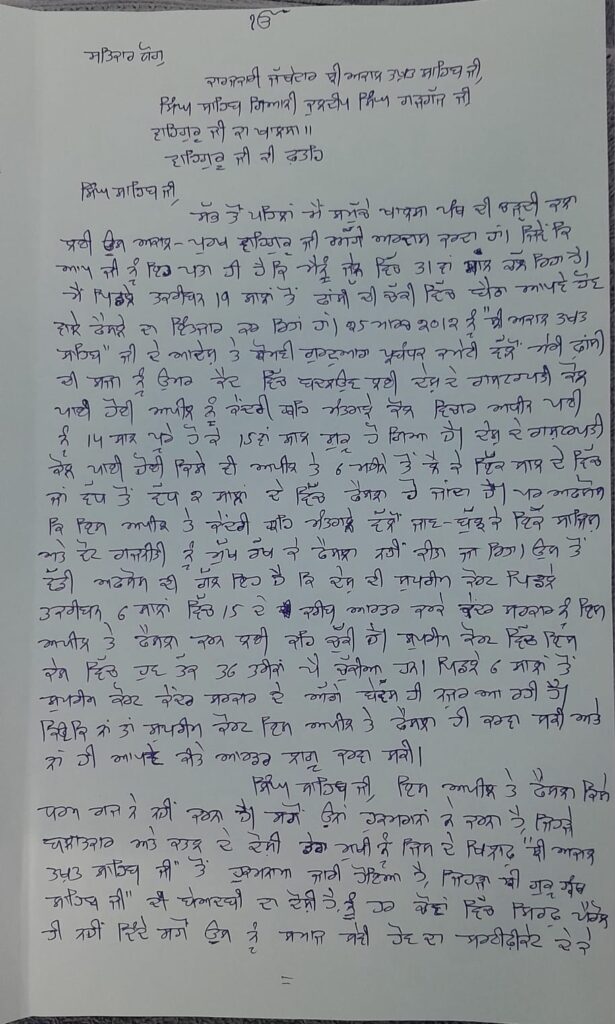 ੴ
ਸਤਿਕਾਰ ਯੋਗ,
ਕਾਰਜਕਾਰੀ ਜੱਥੇਦਾਰ ਸ਼੍ਰੀ ਅਕਾਲ ਤਖ਼ਤ ਸਾਹਿਬ ਜੀ,
ਸਿੰਘ ਸਾਹਿਬ ਗਿਆਨੀ ਕੁਲਦੀਪ ਸਿੰਘ ਗੜਗੱਜ ਜੀ
ਵਾਹਿਗੁਰੂ ਜੀ ਕਾ ਖਾਲਸਾ॥
ਵਾਹਿਗੁਰੂ ਜੀ ਕੀ ਫ਼ਤਹਿ
ਸਿੰਘ ਸਾਹਿਬ ਜੀ,
ਸੱਭ ਤੋਂ ਪਹਿਲਾਂ ਮੈਂ ਸਮੁੱਚੇ ਖਾਲਸਾ ਪੰਥ ਦੀ ਚੜ੍ਹਦੀ ਕਲਾ
ਲਈ ਉਸ ਅਕਾਲ-ਪੁਰਖ ਵਾਹਿਗੁਰੂ ਜੀ ਅੱਗੇ ਅਰਦਾਸ ਕਰਦਾ ਹਾਂ। ਜਿਵੇਂ ਕਿ
ਆਪ ਜੀ ਨੂੰ ਇਹ ਪਤਾ ਹੀ ਹੈ ਕਿ ਮੈਨੂੰ ਜੇਲ ਵਿੱਚ 31ਵਾਂ ਸਾਲ ਚੱਲ ਰਿਹਾ ਹੈ।
ਮੈਂ ਪਿਛਲੇ ਤਕਰੀਬਨ 19 ਸਾਲਾਂ ਤੋਂ ਫਾਂਸੀ ਦੀ ਚੱਕੀ ਵਿੱਚ ਬੈਠਾ ਆਪਣੇ ਹੋਣ
ਵਾਲੇ ਫੈਸਲੇ ਦਾ ਇੰਤਜਾਰ ਕਰ ਰਿਹਾਂ ਹਾਂ। 25 ਮਾਰਚ 2012 ਨੂੰ "ਸ਼੍ਰੀ ਅਕਾਲ ਤਖ਼ਤ
ਸਾਹਿਬ" ਜੀ ਦੇ ਆਦੇਸ਼ ਤੇ ਸ਼੍ਰੋਮਣੀ ਗੁਰਦੁਆਰਾ ਪ੍ਰਬੰਧਕ ਕਮੇਟੀ ਵੱਲੋਂ ਮੇਰੀ ਫਾਂਸੀ
ਦੀ ਸਜਾ ਨੂੰ ਉਮਰ ਕੈਦ ਵਿੱਚ ਬਦਲਾਉਣ ਲਈ ਦੇਸ਼ ਦੇ ਰਾਸ਼ਟਰਪਤੀ ਕੋਲ
ਪਾਈ ਹੋਈ ਅਪੀਲ ਨੂੰ ਕੇਂਦਰੀ ਗ੍ਰਹਿ ਮੰਤਰਾਲੇ ਕੋਲ ਵਿਚਾਰ ਅਧੀਨ ਪਈ
ਨੂੰ 14 ਸਾਲ ਪੂਰੇ ਹੋ ਕੇ 15ਵਾਂ ਸਾਲ ਸ਼ੁਰੂ ਹੋ ਗਿਆ ਹੈ। ਦੇਸ਼ ਦੇ ਰਾਸ਼ਟਰਪਤੀ
ਕੋਲ ਪਾਈ ਹੋਈ ਕਿਸੇ ਵੀ ਅਪੀਲ ਤੇ 6 ਮਹੀਨੇ ਤੋਂ ਲੈ ਕੇ ਇੱਕ ਸਾਲ ਦੇ ਵਿੱਚ
ਜਾਂ ਵੱਧ ਤੋਂ ਵੱਧ 2 ਸਾਲਾਂ ਦੇ ਵਿੱਚ ਫੈਸਲਾ ਹੋ ਜਾਂਦਾ ਹੈ। ਪਰ ਅਫਸੋਸ
ਕਿ ਇਸ ਅਪੀਲ ਤੇ ਕੇਂਦਰੀ ਗ੍ਰਹਿ ਮੰਤਰਾਲੇ ਵੱਲੋਂ ਜਾਣ-ਬੁੱਝ ਕੇ ਇੱਕ ਸਾਜਿਸ਼
ਅਤੇ ਵੋਟ ਰਾਜਨੀਤੀ ਨੂੰ ਮੁੱਖ ਰੱਖ ਕੇ ਫੈਸਲਾ ਨਹੀਂ ਕੀਤਾ ਜਾ ਰਿਹਾ। ਉਸ ਤੋਂ
ਵੱਡੀ ਅਫਸੋਸ ਦੀ ਗੱਲ ਇਹ ਹੈ ਕਿ ਦੇਸ਼ ਦੀ ਸੁਪਰੀਮ ਕੋਰਟ ਪਿਛਲੇ
ਤਕਰੀਬਨ 6 ਸਾਲਾਂ ਵਿੱਚ 15 ਦੇ ਕਰੀਬ ਆਰਡਰ ਕਰਕੇ ਕੇਂਦਰ ਸਰਕਾਰ ਨੂੰ ਇਸ
ਅਪੀਲ ਤੇ ਫੈਸਲਾ ਕਰਨ ਲਈ ਕਹਿ ਚੁੱਕੀ ਹੈ। ਸੁਪਰੀਮ ਕੋਰਟ ਵਿੱਚ ਇਸ
ਕੇਸ ਵਿੱਚ ਹੁਣ ਤੱਕ 36 ਤਰੀਕਾਂ ਪੈ ਚੁੱਕੀਆਂ ਹਨ। ਪਿਛਲੇ 6 ਸਾਲਾਂ ਤੋਂ
ਸੁਪਰੀਮ ਕੋਰਟ ਕੇਂਦਰ ਸਰਕਾਰ ਦੇ ਅੱਗੇ ਬੇਵੱਸ ਹੀ ਨਜਰ ਆ ਰਹੀ ਹੈ।
ਕਿਉਂਕਿ ਨਾਂ ਤਾਂ ਸੁਪਰੀਮ ਕੋਰਟ ਇਸ ਅਪੀਲ ਤੇ ਫੈਸਲਾ ਹੀ ਕਰਵਾ ਸਕੀ ਅਤੇ
ਨਾਂ ਹੀ ਆਪਣੇ ਕੀਤੇ ਆਰਡਰ ਲਾਗੂ ਕਰਵਾ ਸਕੀ।
ਸਿੰਘ ਸਾਹਿਬ ਜੀ, ਇਸ ਅਪੀਲ ਤੇ ਫੈਸਲਾ ਕਿਸੇ
ਧਰਮ ਰਾਜ ਨੇ ਨਹੀਂ ਕਰਨਾ ਹੈ। ਸਗੋਂ ਉਨਾਂ ਹੁਕਮਰਾਨਾਂ ਨੇ ਕਰਨਾ ਹੈ, ਜਿਹੜੇ
ਬਲਾਤਕਾਰ ਅਤੇ ਕਤਲ ਦੇ ਦੋਸ਼ੀ ਡੇਰਾ ਮੁਖੀ ਨੂੰ ਜਿਸ ਦੇ ਖਿਲਾਫ਼ "ਸ਼੍ਰੀ ਅਕਾਲ
ਤਖ਼ਤ ਸਾਹਿਬ ਜੀ" ਤੋਂ ਹੁਕਮਨਾਮਾ ਜਾਰੀ ਹੋਇਆ ਹੈ, ਜਿਹੜਾ ਸ਼੍ਰੀ ਗੁਰੂ ਗ੍ਰੰਥ
ਸਾਹਿਬ ਜੀ" ਦੀ ਬੇਅਦਬੀ ਦਾ ਦੋਸ਼ੀ ਹੈ, ਨੂੰ ਹਰ ਚੋਣਾਂ ਵਿੱਚ ਸਿਰਫ਼ ਪੈਰੋਲ
ਹੀ ਨਹੀਂ ਦਿੰਦੇ ਸਗੋਂ ਉਸ ਨੂੰ ਸਮਾਜ ਸੇਵੀ ਹੋਣ ਦਾ ਸਰਟੀਫੀਕੇਟ ਦੇ ਕੇ